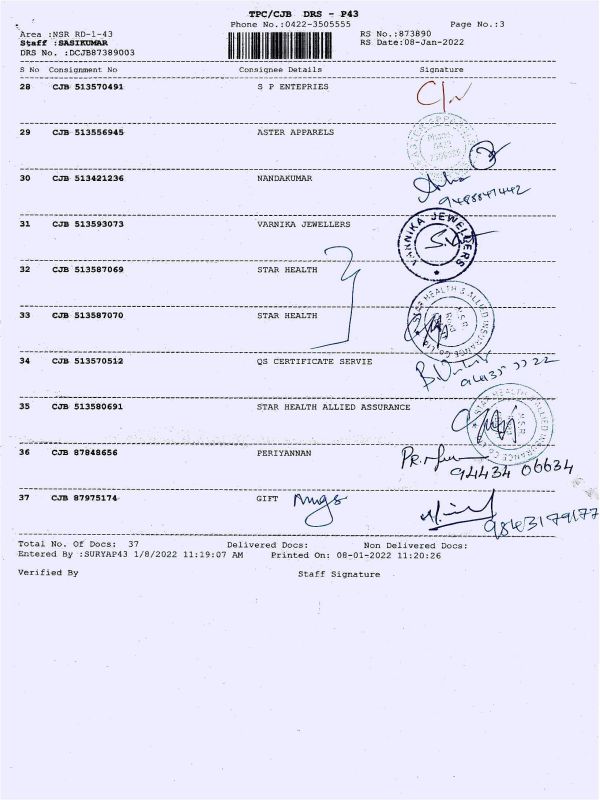 TPC/CJB DRS - P43
Phone No.:0422-3505555 Page No.:3
Area :NSR RD-1-43 RS No.:873890
Staff :SASIKUMAR RS Date:08-Jan-2022
DRS No. :DCJB87389003
S No Consignment No Consignee Details Signature
28 CJB 513570491 S P ENTEPRIES
29 CJB 513556945 ASTER APPARELS
30 CJB 513421236 NANDAKUMAR
31 CJB 513593073 VARNIKA JEWELLERS
VARNIKA JEWELLERS
32 CJB 513587069 STAR HEALTH
33 CJB 513587070 STAR HEALTH
STAR HEALTH & ALLIED INSURANCE Co. Ltd.
34 CJB 513570512 QS CERTIFICATE SERVIE
35 CJB 513580691 STAR HEALTH ALLIED ASSURANCE
STAR HEALTH & ALLIED INSURANCE Co.
36 CJB 87848656 PERIYANNAN
94434 06634
37 CJB 87975174 GIFT
9843179177
Total No. Of Docs: 37 Delivered Docs: Non Delivered Docs:
Entered By :SURYAP43 1/8/2022 11:19:07 AM Printed On: 08-01-2022 11:20:26
Verified By Staff Signature